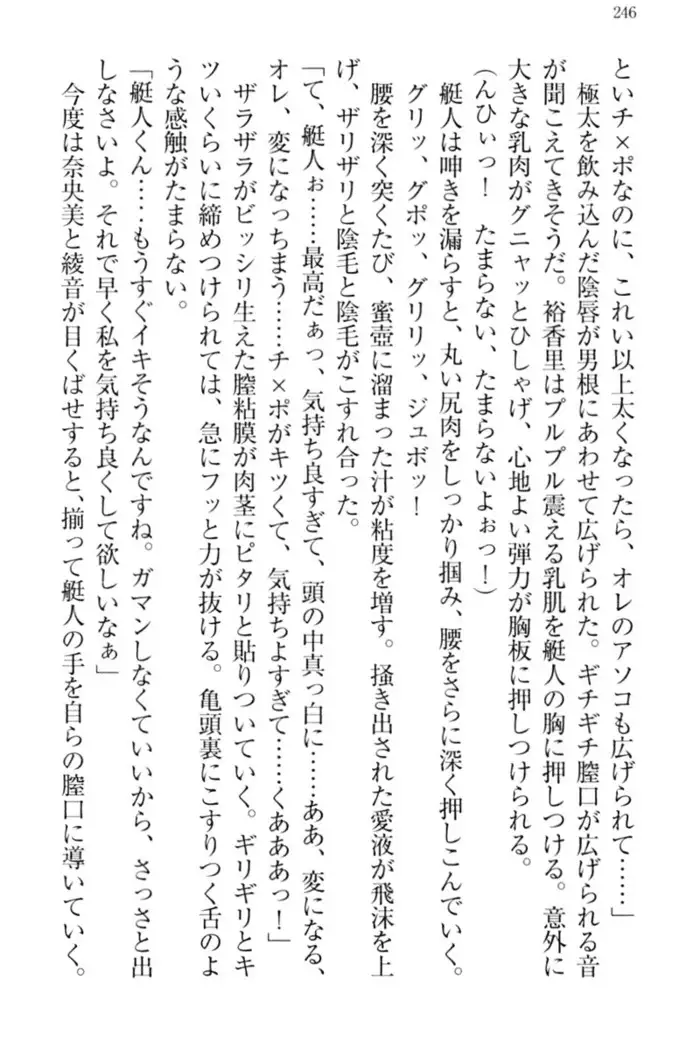 246
といチ×ポなのに、これい以上太くなったら、オレのアソコも広げられて……」
極太を飲み込んだ陰唇が男根にあわせて広げられた。ギチギチ膣口が広げられる音
が聞こえてきそうだ。裕香里はプルプル震える乳肌を艇人の胸に押しつける。意外に
大きな乳肉がグニャッとひしゃげ、心地よい弾力が胸板に押しつけられる。
(んひぃっ！　たまらない、たまらないよぉっ！)
艇人は呻きを漏らすと、丸い尻肉をしっかり掴み、腰をさらに深く押しこんでいく。
グリッ、グポッ、グリリッ、ジュボッ！
腰を深く突くたび、蜜壺に溜まった汁が粘度を増す。掻き出された愛液が飛沫を上
げ、ザリザリと陰毛と陰毛がこすれ合った。
「て、艇人ぉ……最高だぁっ、気持ち良すぎて、頭の中真っ白に……ああ、変になる、
オレ、変になっちまう……チ×ポがキツくて、気持ちよすぎて……くあああっ！」
ザラザラがビッシリ生えた膣粘膜が肉茎にピタリと貼りついていく。ギリギリとキ
ツいくらいに締めつけられては、急にフッと力が抜ける。亀頭裏にこすりつく舌のよ
うな感触がたまらない。
「艇人くん……もうすぐイキそうなんですね。ガマンしなくていいから、さっさと出
しなさいよ。それで早く私を気持ち良くして欲しいなぁ」
今度は奈央美と綾音が目くばせすると、揃って艇人の手を自らの膣口に導いていく。